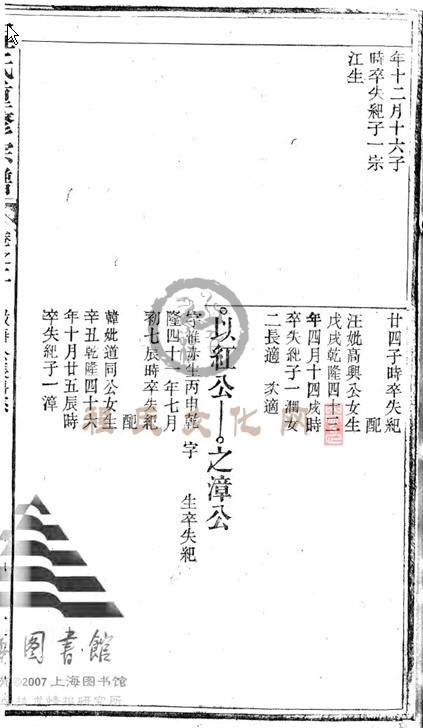 年十二月十六子
時卒失紀子一宗
江生
廿四子時卒失紀
配
汪妣高興公女生
戊戌乾隆四十三
年四月十四戌時
卒失紀子一潤女
二長適　次適
以紅公
之漳公
生丙申乾
隆四十一年七月
初七辰時卒失紀
配
韓妣道同公女生
辛丑乾隆四十六
年十月廿五辰時
卒失紀子一漳
字　生卒失紀
祖氏文化网
图書館
©2007 上海图书馆